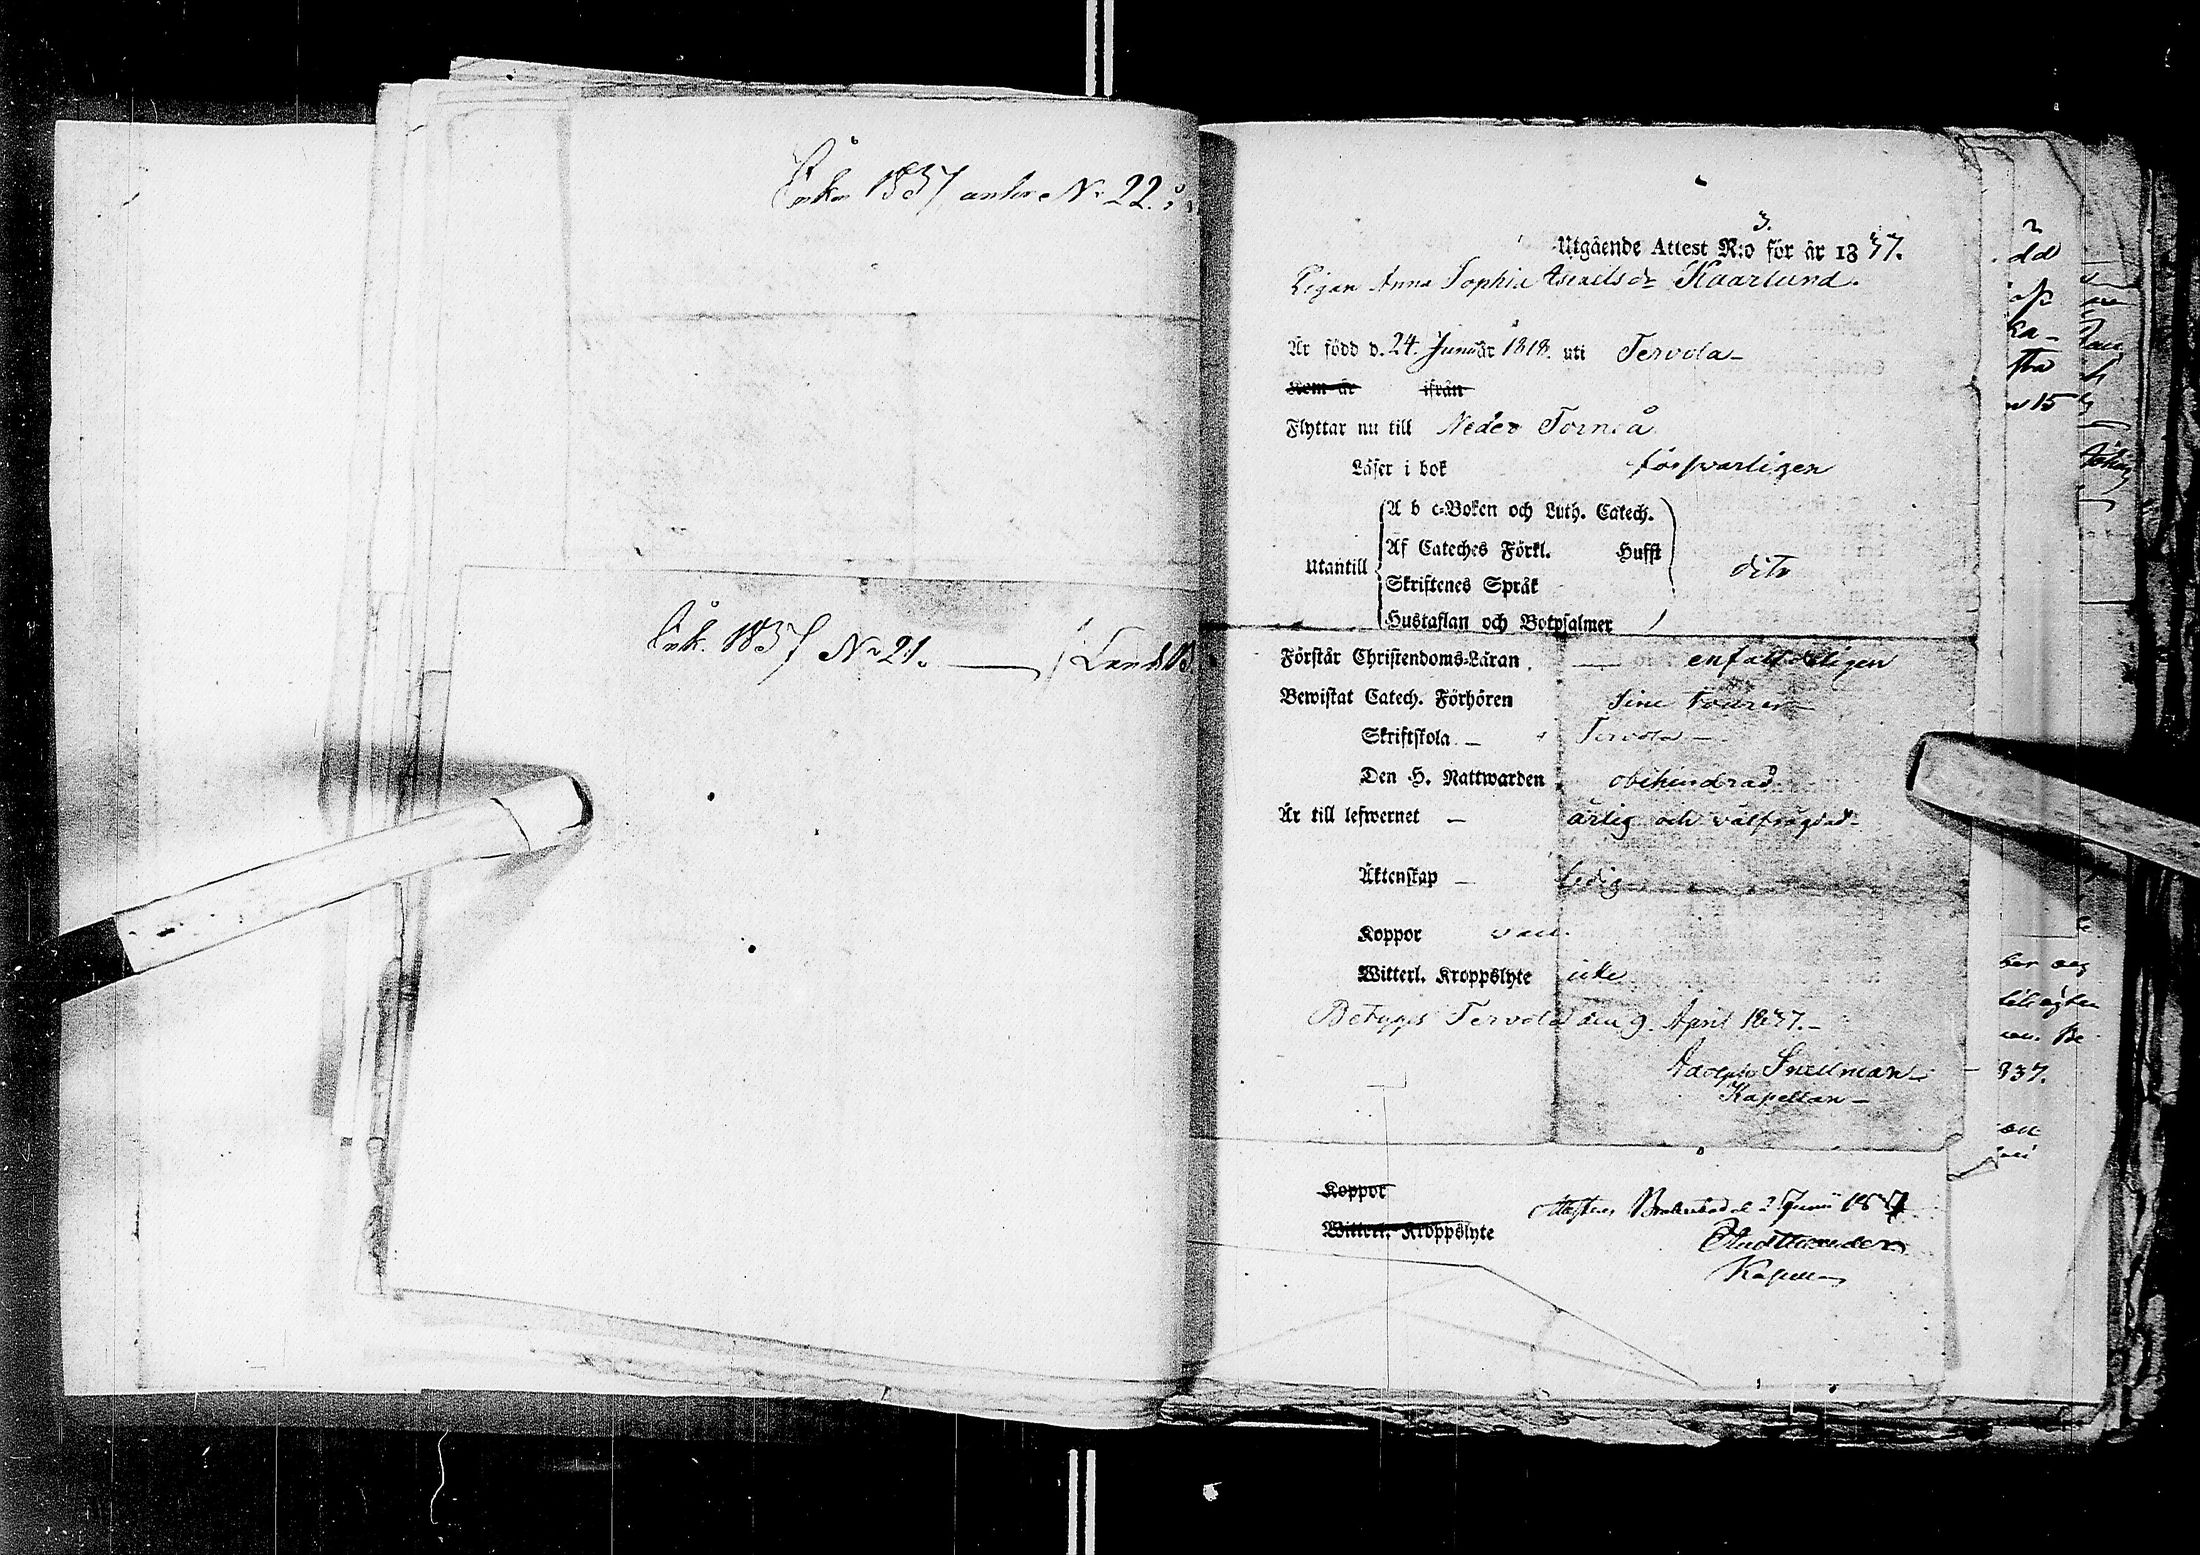 1837 N: 22.
Ink. 1837 N: 21.
3.
Utgående Attest N:o för år 1837.
Pigan Anna Sophia Kaarlund.
Är född d. 24 Januar 1818. uti Tervola
Kom år ifrån
Flyttar nu till Neder Torneå
Läser i bok försvarligen
Utantill
A b c-Boken och Luth. Catech.
Af Cateches Förkl. Hufst
Skriftenes Språk
Hustaflan och Botpsalmer
dito
Förstår Christendoms-Läran enfaldeligen
Bewistat Catech. Förhören sine tourer
Skriftskola Tervola
Den H. Nattwarden obehindrad
Är till lefwernet ärlig och välfrägdad
Äktenskap Ledig
Koppor vacc.
Witterl. Kroppslyte icke
Betygas Tervola den 9. April 1837.
Adolph Snellman
Kapellan
Koppor
Witterl. Kroppslyte
Junii 1837
Kapellan
dd
ka-
337.